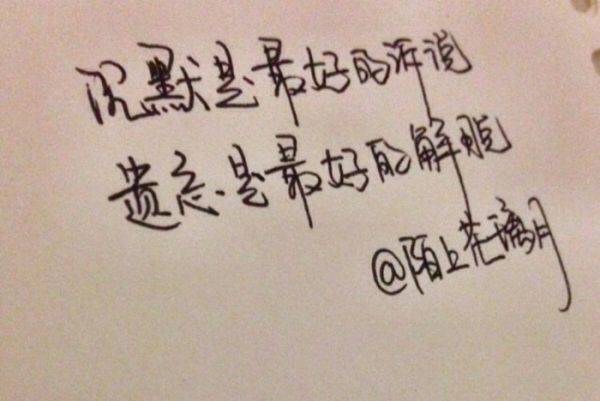 沉默是最好的诉说
遗忘是最好的解脱
@陌上花漓月